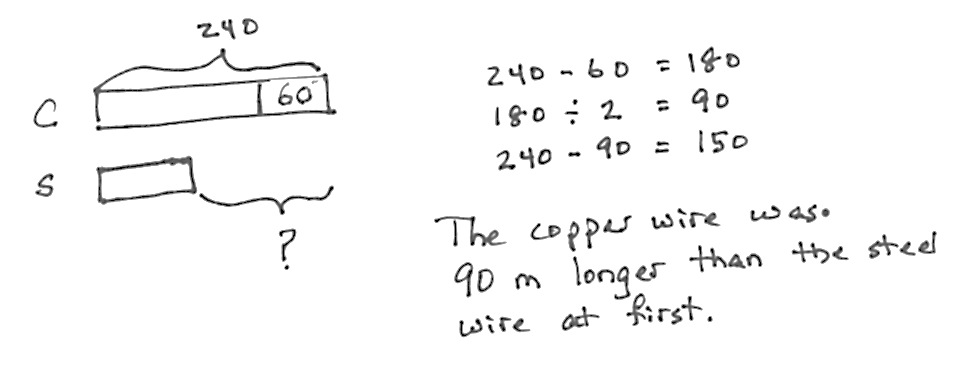 240
C 60
S
?
240 - 60 = 180
180 ÷ 2 = 90
240 - 90 = 150
The copper wire was.
90 m longer than the steel
wire at first.